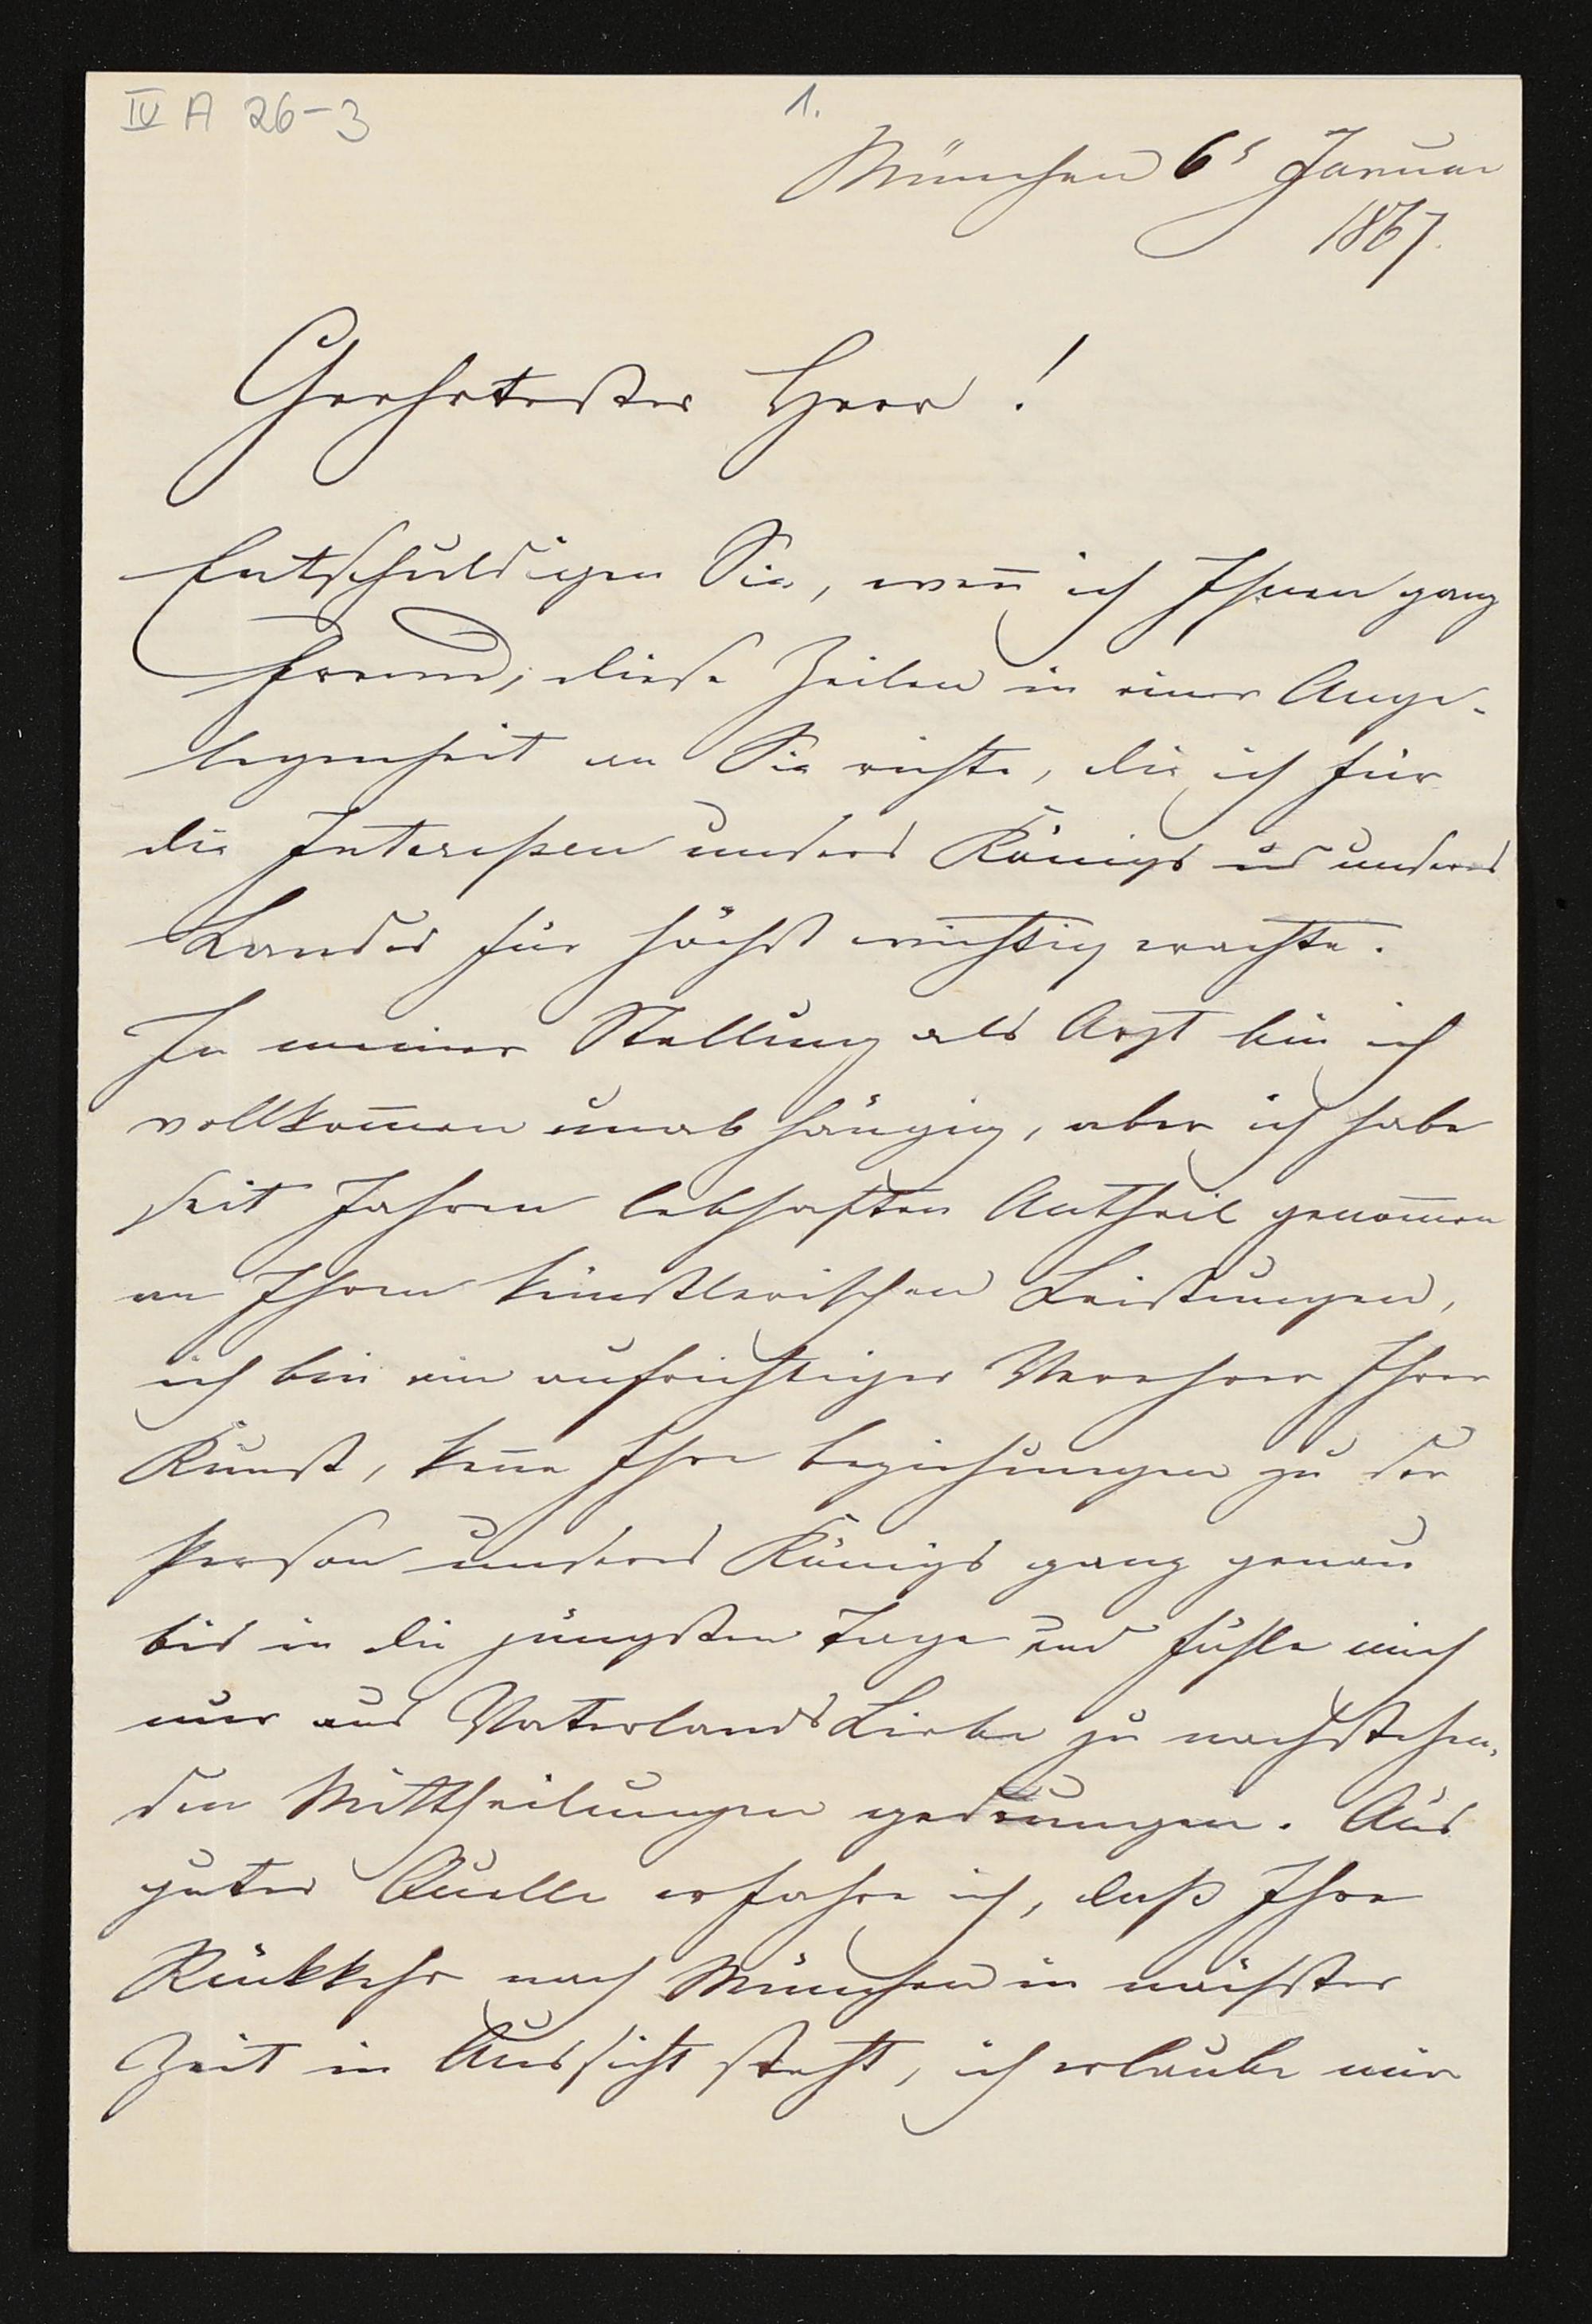 IV A 26-3
1.
München 6t Januar
1867.
Geehrtester Herr!
Entschuldigen Sie, wen̄ ich Ihnen ganz
fremd, diese Zeilen in einer Ange-
legenheit an Sie richte, die ich für
die Interessen unsers Königs und unseres
Landes für höchst wichtig erachte.
In meiner Stellung als Arzt bin ich
vollkom̄en unabhängig, aber ich habe
seit Jahren lebhaften Antheil genom̄en
an Ihren künstlerischen Leistungen,
ich bin ein aufrichtiger Verehrer Ihrer
Kunst, ken̄e Ihre Beziehungen zu der
Person unseres Königs ganz genau
bis in die jüngsten Tage und fühle mich
nur aus Vaterlands Liebe zu nachstehen-
den Mittheilungen gedrungen. Aus
guter Quelle erfahre ich, daß Ihre
Rückkehr nach München in nächster
Zeit in Aussicht steht, ich erlaube mir